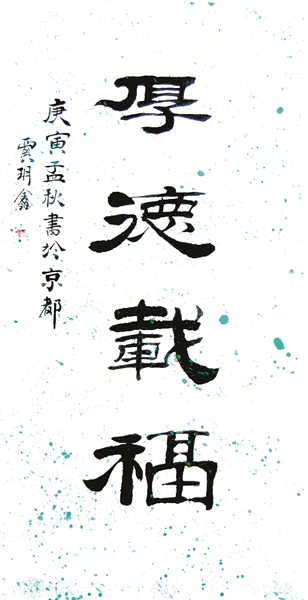 厚德載福
庚寅孟秋書於京都
玥鑫